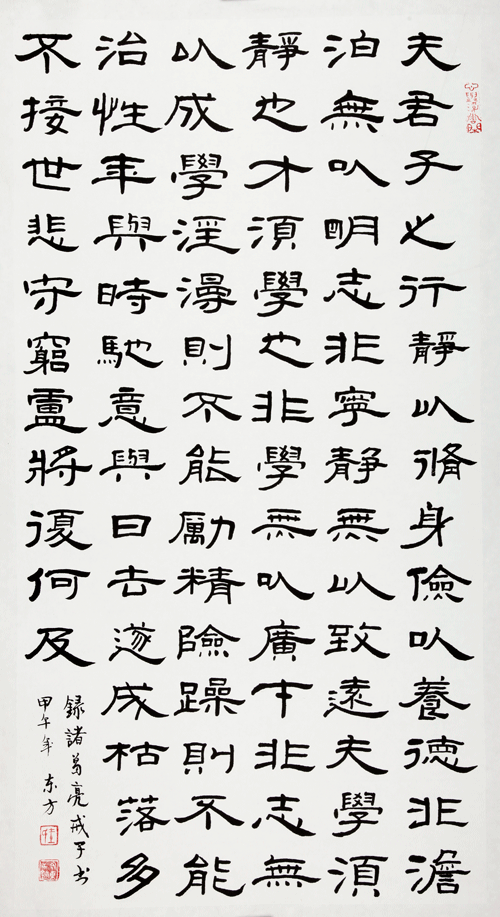 夫君子必行靜以脩身儉以養德非澹
泊無以明志非寧靜無以致遠夫學須
靜也才須學也非學無以廣才非志無
以成學淫漫則不能勵精險躁則不能
治性年與時馳意與日去遂成枯落多
不接世悲守窮盧將復何及
録諸葛亮戒子书
甲午年东方